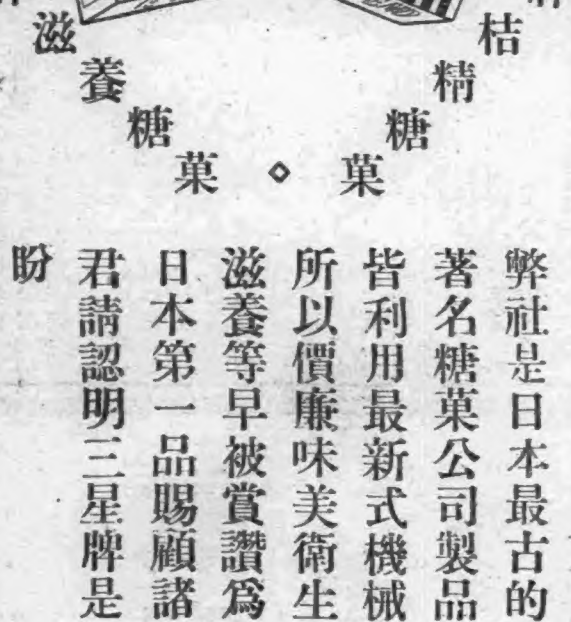 桔精糖菓
◇
滋養糖菓
弊社是日本最古的
著名糖菓公司製品
皆利用最新式機械
所以價廉味美衛生
滋養等早被賞讚爲
日本第一品賜顧諸
君請認明三星牌是
盼